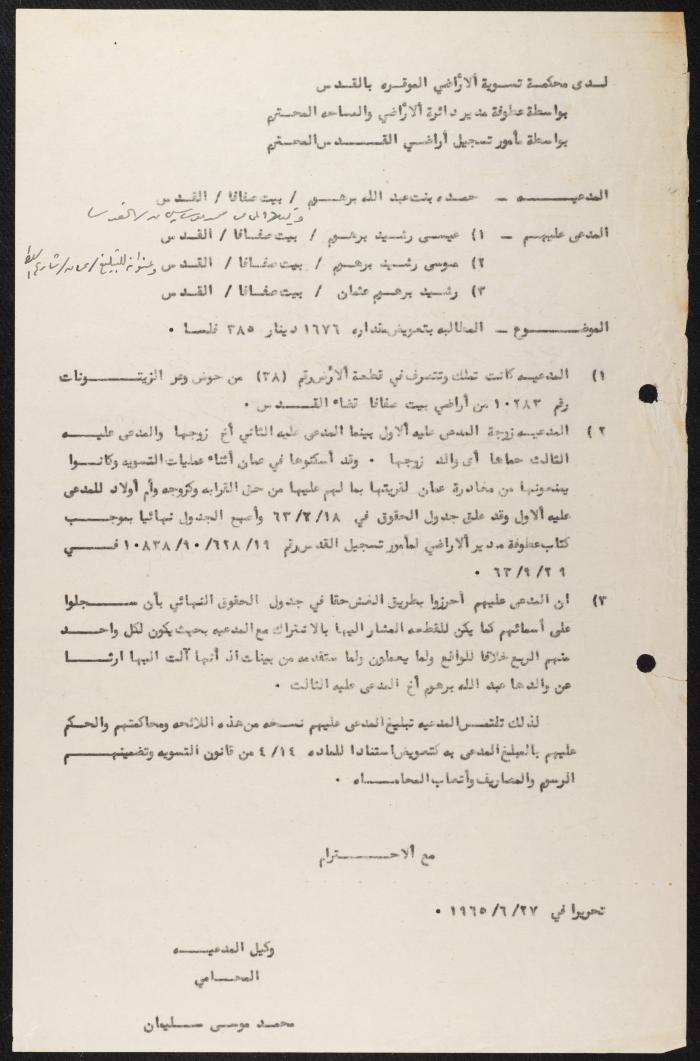 لدى محكمة تسوية ألاراضي الموقره بالقدس
بواسطة عطوفة مدير دائرة ألاراضي والمساحه المحترم
بواسطة مأمور تسجيل أراضي القدس المحترم
المدعيه – حمده بنت عبد الله برهوم / بيت صفافا / القدس
المدعى عليهم – ١) عيسى رشيد برهوم / بيت صفافا / القدس
٢) موسى رشيد برهوم / بيت صفافا / القدس وعنوانه للتبليغ / عمان /
٣) رشيد برهوم عثمان / بيت صفافا / القدس
الموضوع – المطالبه بتعويض مقداره ١٦٧٦ دينار ٣٨٥ فلسا ٠
١) المدعيه كانت تملك وتتصرف في قطعة ألارض رقم (٣٨) من حوض وعر الزيتونات
رقم ١٠٢٨٣ من أراضي بيت صفافا قضاء القدس ٠
٢) المدعيه زوجة المدعى عليه ألاول بينما المدعى عليه الثاني أخ زوجها والمدعى عليه
الثالث حماها أى والد زوجها ٠ وقد أسكنوها في عمان أثناء عمليات التسويه وكانوا
يمنعونها من مغادرة عمان لقريتها بما لهم عليها من حق القرابه وكزوجه وأم أولاد للمدعى
عليه ألاول وقد علق جدول الحقوق في ٦٣/٢/١٨ وأصبح الجدول نهائيا بموجب
كتاب عطوفة مدير ألاراضي لمأمور تسجيل القدس رقم ١٠٨٣٨/٩٠/٦٢٨/١٩ في
٦٣/٩/٢٩ ٠
٣) ان المدعى عليهم أحرزوا بطريق الغش حقا في جدول الحقوق النهائي بأن سجلوا
على أسمائهم كما يكن للقطعه المشار اليها بالاشتراك مع المدعيه بحيث يكون لكل واحد
منهم الربع خلافا للواقع ولما يعملون ولما ستقدمه من بينات اذ أنها آلت اليها ارثا
عن والدها عبد الله برهوم أخ المدعى عليه الثالث ٠
لذلك تلتمس المدعيه تبليغ المدعى عليهم نسخه من هذه اللائحه ومحاكمتهم والحكم
عليهم بالمبلغ المدعى به كتعويض استنادا للماده ٤/١٤ من قانون التسويه وتضمينهم
الرسوم والمصاريف وأتعاب المحاماه ٠
مع ألاحترام
تحريرا في ١٩٦٥/٦/٢٧ ٠
وكيل المدعيه
المحامي
محمد موسى سليمان